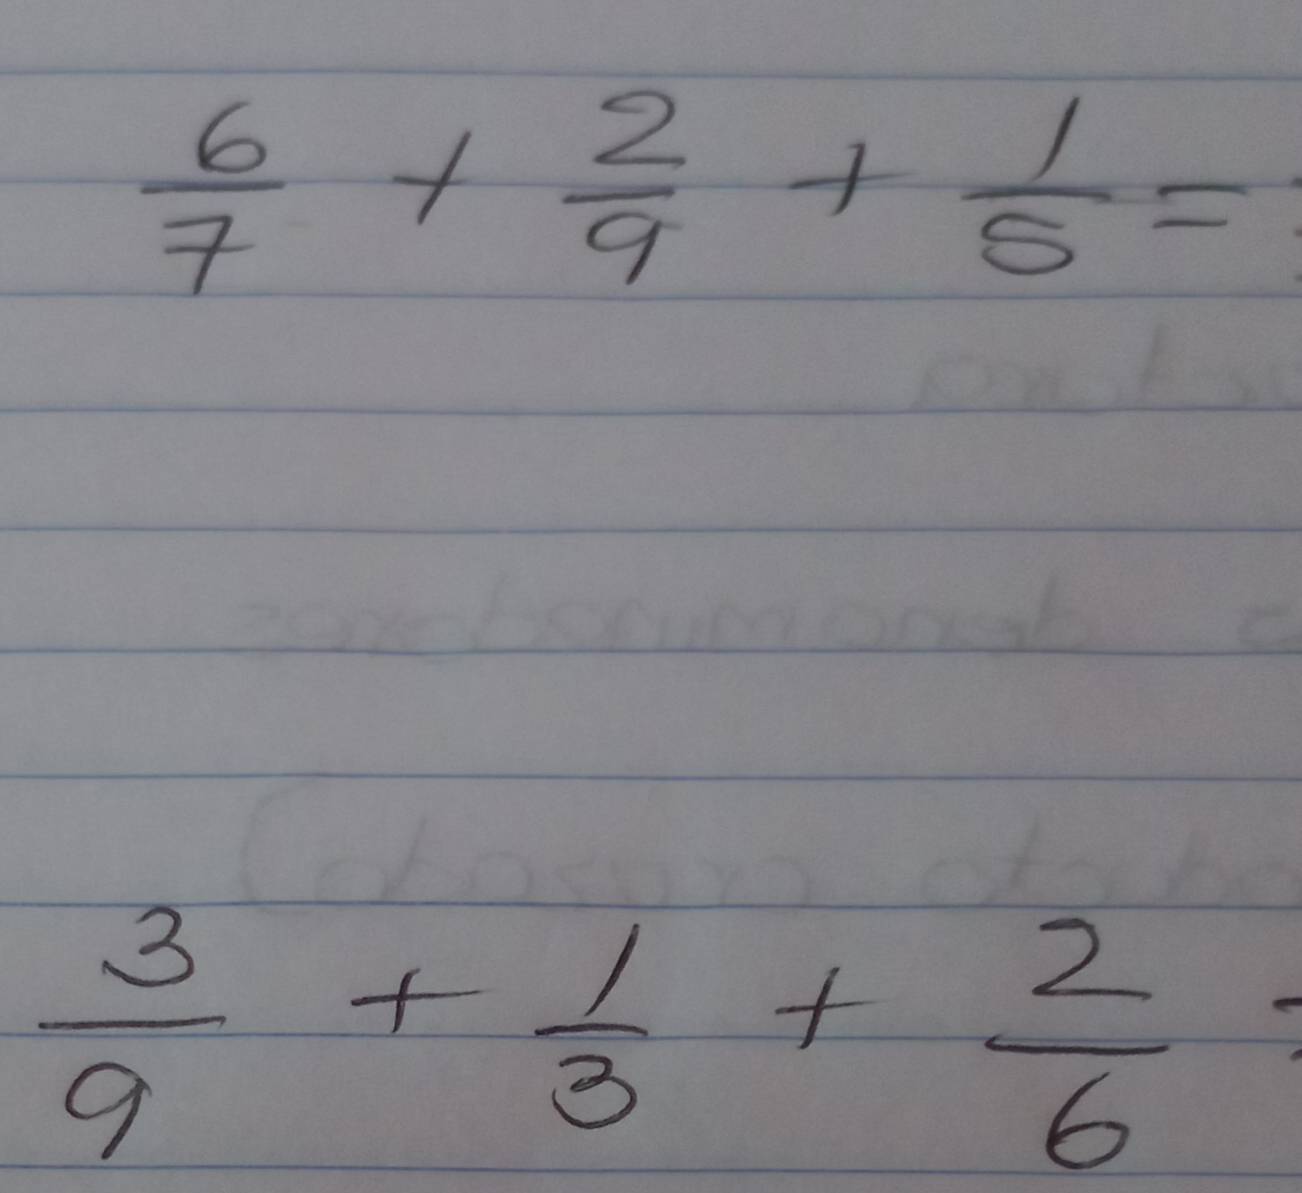 6/7 + 2/9 + 1/5 =
3/9 + 1/3 + 2/6 =